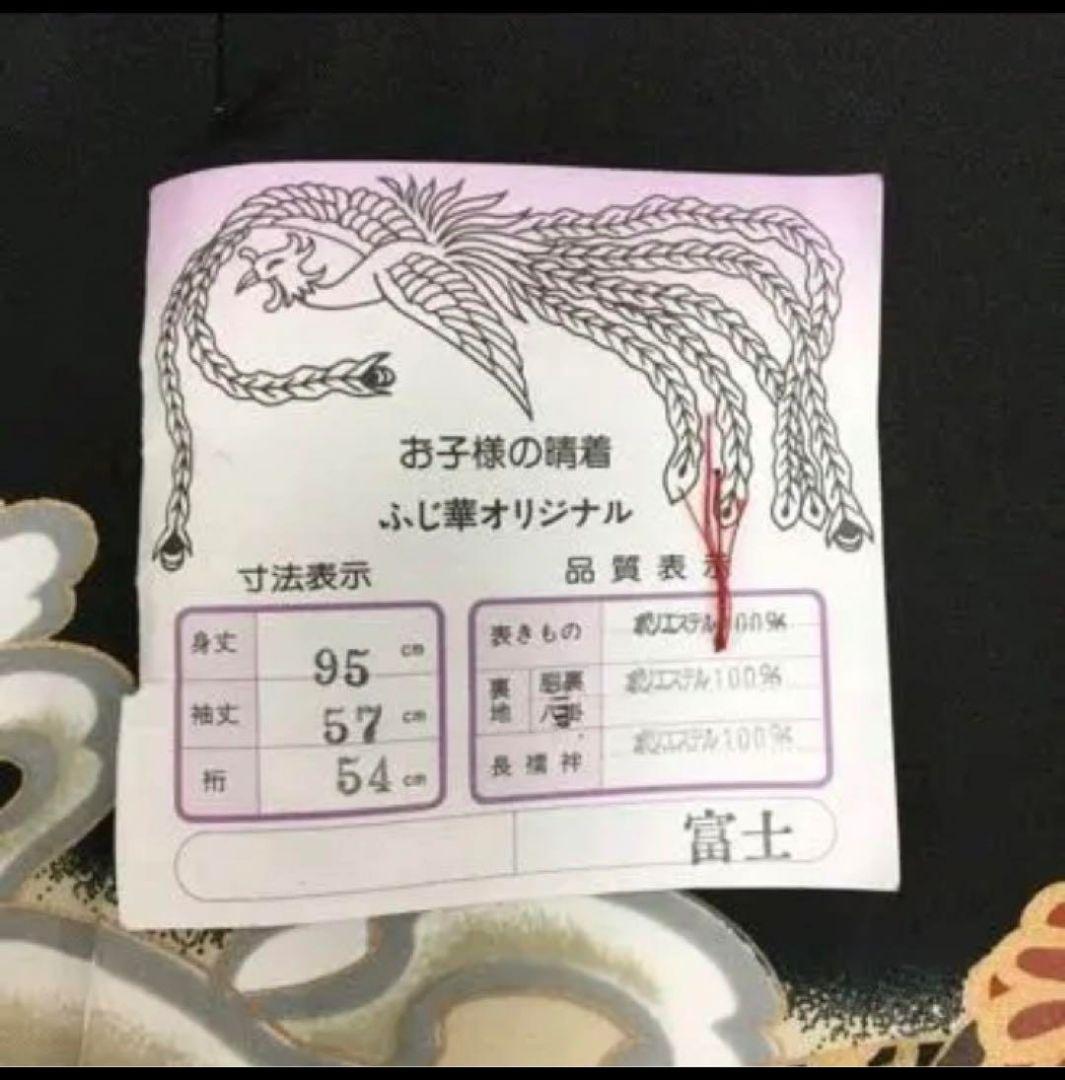 お子様の晴着
ふじ華オリジナル
寸法表示
身丈 95 cm
袖丈 57 cm
裄 54 cm
品質表示
表きもの ポリエステル100%
裏地 胴裏 八掛 ポリエステル100%
長襦袢 ポリエステル100%
富士